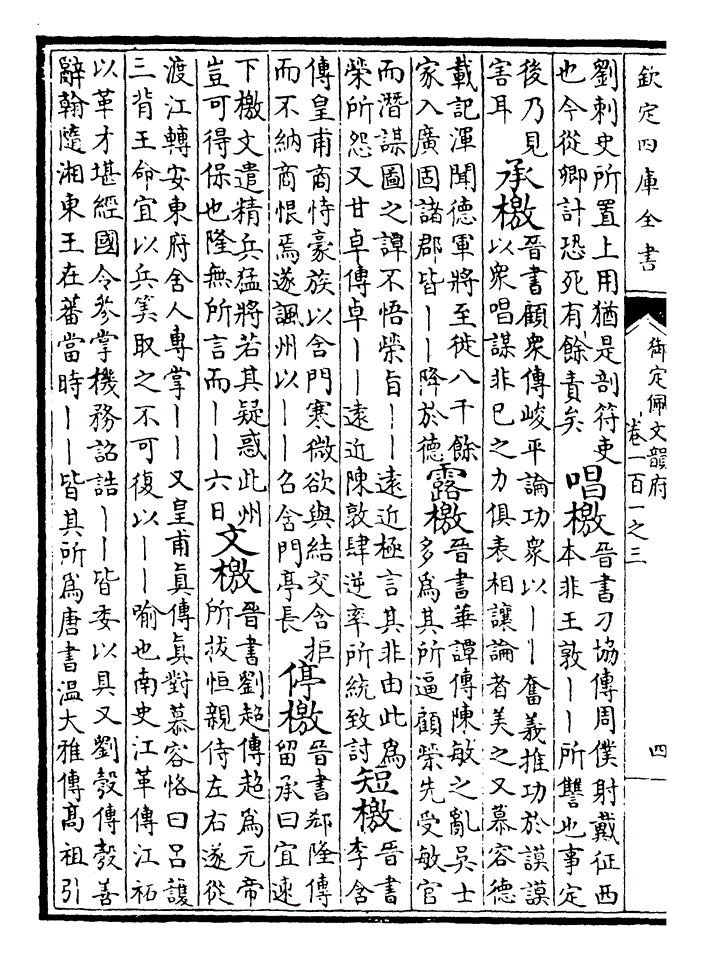 欽定四庫全書
御定佩文韻府
卷一百一之三
四
劉刺史所置上用猶是剖符吏
也今從卿計恐死有餘責矣
唱檄
晉書刁協傳周僕射戴征西
本非王敦――所讐也事定
後乃見
害耳
承檄
晉書顧衆傳峻平論功衆以――奮義推功於謨謨
以衆唱謀非己之力俱表相讓論者美之又慕容德
載記渾聞德軍將至徙八千餘
家入廣固諸郡皆――降於德
露檄
晉書華譚傳陳敏之亂吳士
多爲其所逼顧榮先受敏官
而潛謀圖之譚不悟榮旨――遠近極言其非由此爲
榮所怨又甘卓傳卓――遠近陳敦肆逆率所統致討
短檄
晉書
李含
傳皇甫商恃豪族以含門寒微欲與結交含拒
而不納商恨焉遂諷州以――召含門亭長
停檄
晉書郄隆傳
留承曰宜速
下檄文遣精兵猛將若其疑惑此州
豈可得保也隆無所言而――六日
文檄
晉書劉超傳超爲元帝
所拔恒親侍左右遂從
渡江轉安東府舍人專掌――又皇甫眞傳眞對慕容恪曰呂護
三背王命宜以兵筭取之不可復以――喻也南史江革傳江祏
以革才堪經國令參掌機務詔誥――皆委以具又劉瑴傳瑴善
辭翰隨湘東王在蕃當時――皆其所爲唐書温大雅傳高祖引